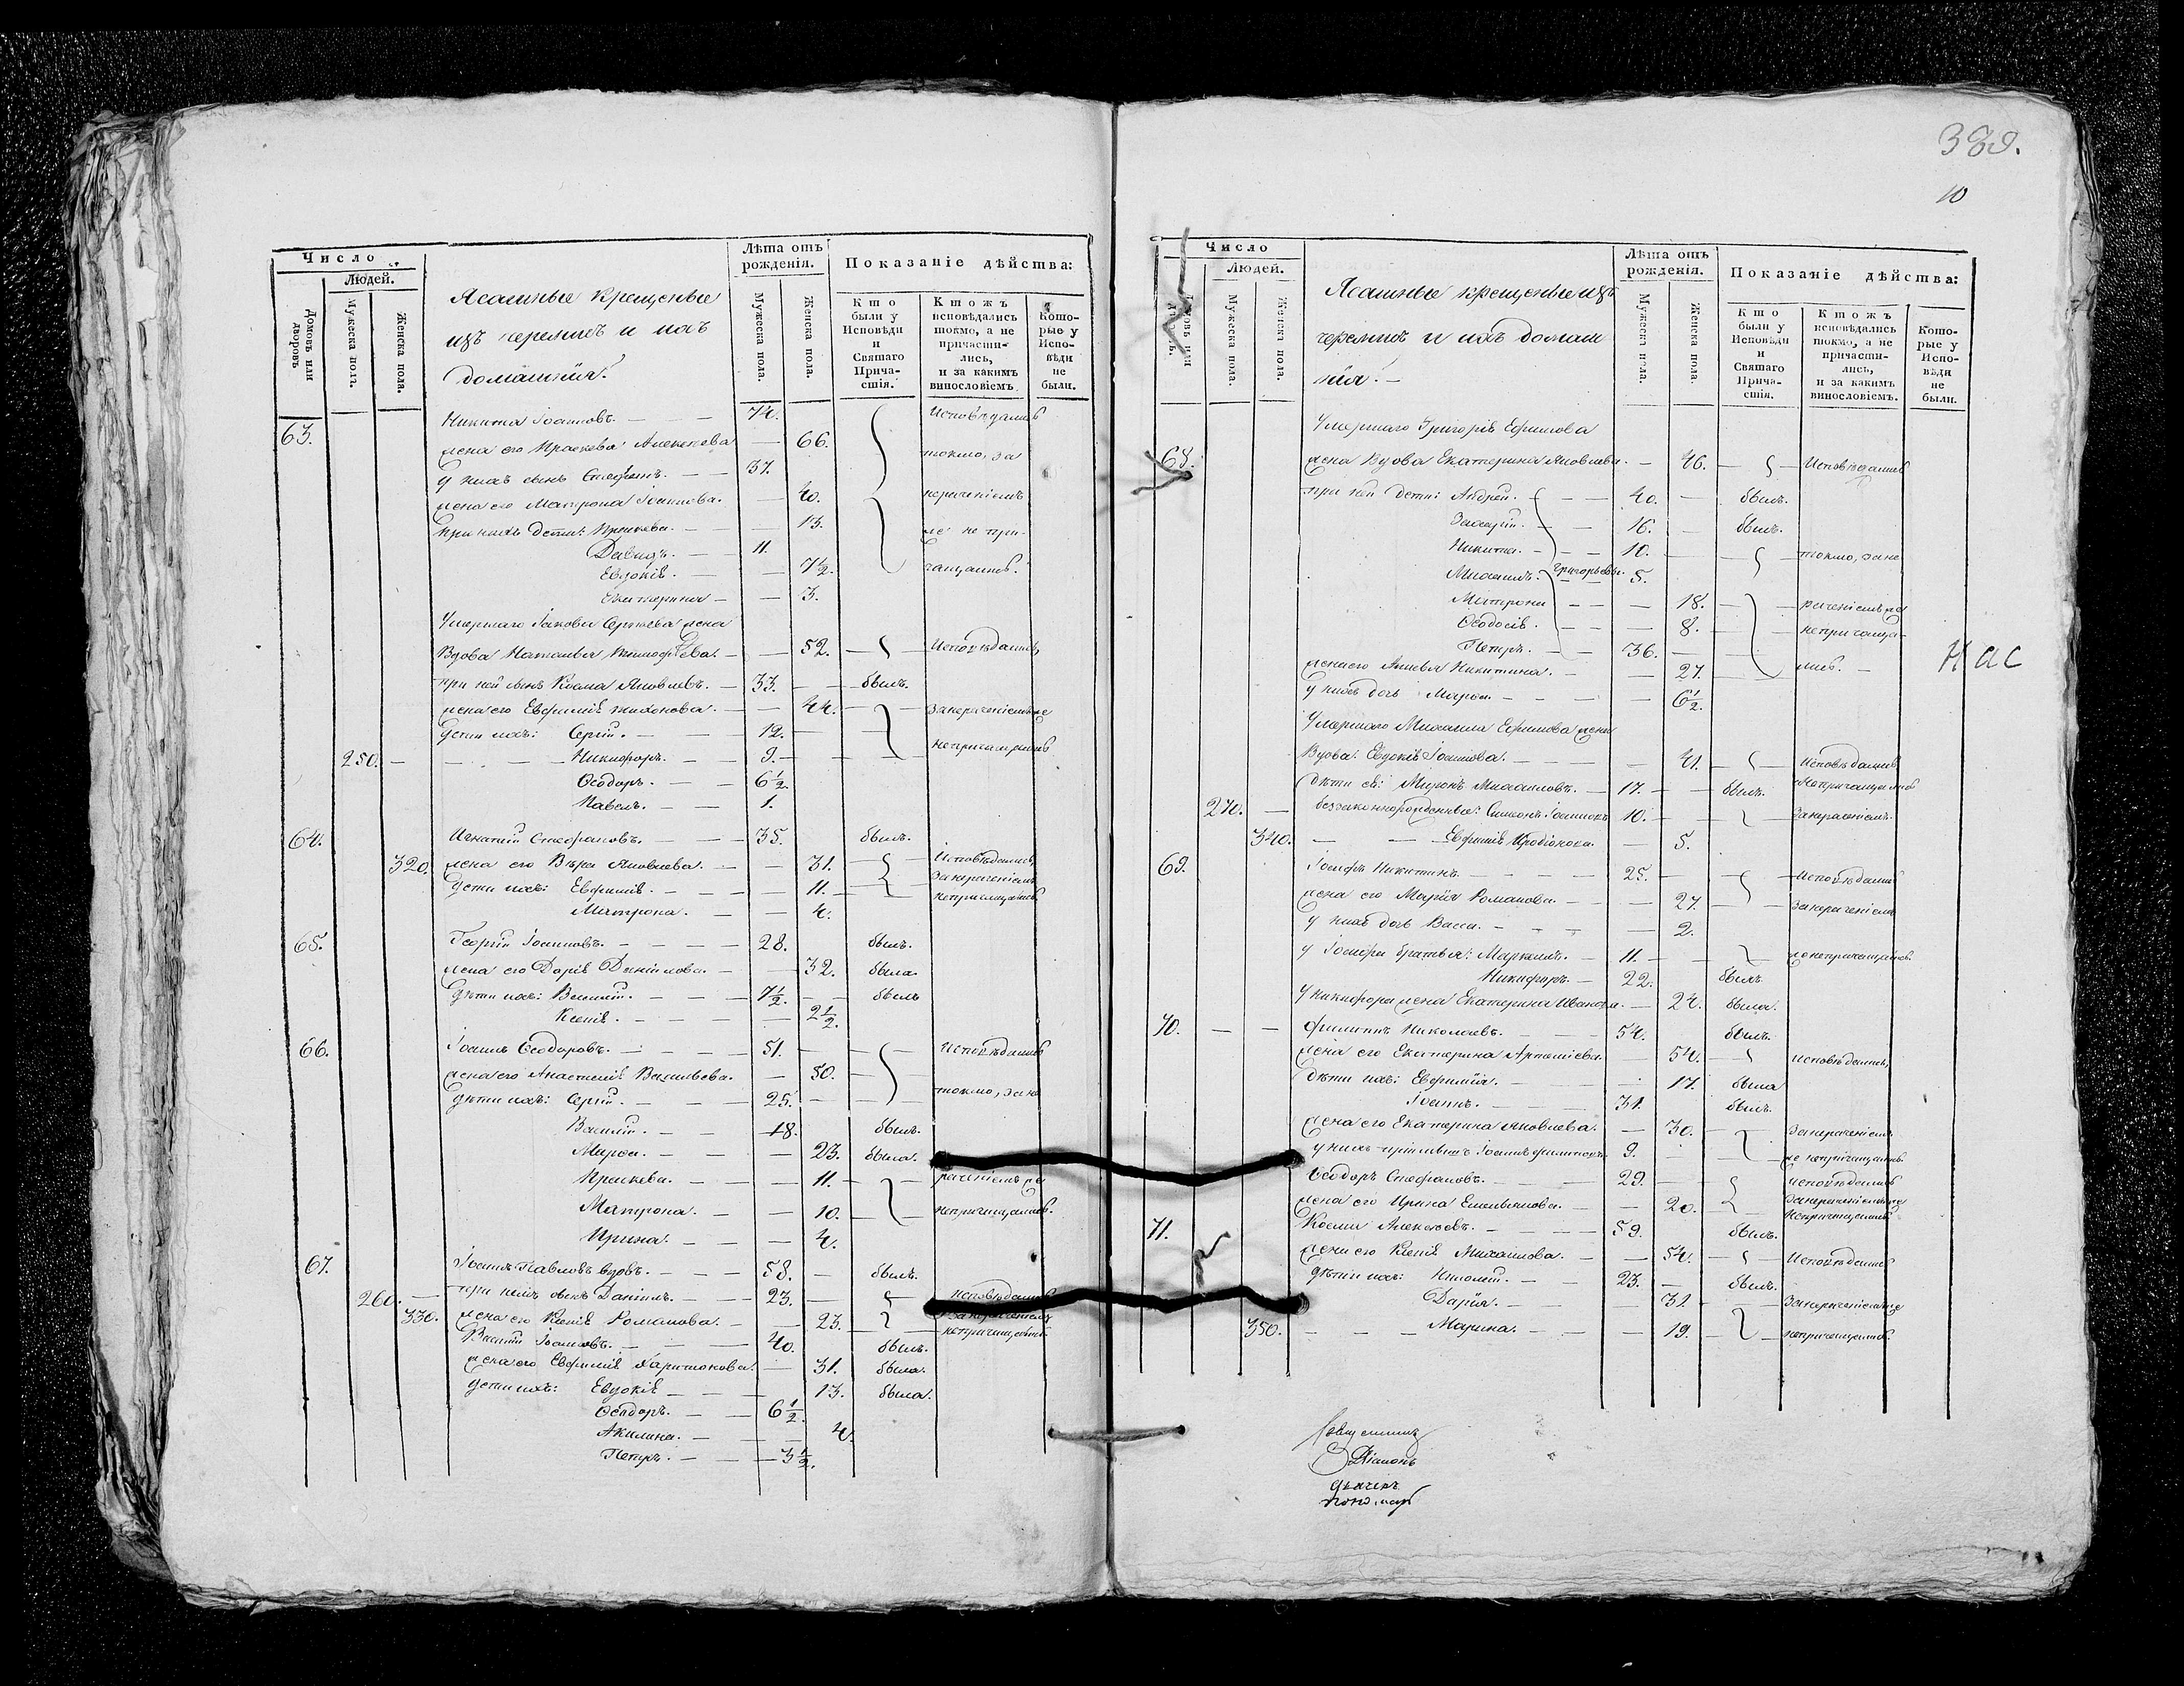 Число
Людей.
Домовъ или дворовъ
Мужеска полъ.
Женска пола.
Ясашные крещеные
изъ черемисъ и ихъ
домашнія.
Лѣта отъ рожденія.
Мужеска пола.
Женска пола.
Показаніе дѣйства:
Кто были у Исповѣди и Святаго Прича-стія.
Ктожъ исповѣдались токмо, а не причасти-лись, и за какимъ винословіемъ.
Кото-рые у Испо-вѣди не были.
63. Никита Іоанновъ. — — 74. Исповѣдались
жена его Праскева Алексеева — 66.
у нихъ сынъ Стефанъ. — — 37. токмо, за
жена его Матрона Іоаннова. — 40. нерачені­емъ
при нихъ дети: Праскева. — — 13. не при-
Давидъ. — 11.
Евдокія. — — 7½. чащались.
Екатерина — — 3.
Умершаго Іакова Сергѣева жена
Вдова Наталья Тимофѣева. — — 52. — Исповѣдались
при ней сынъ Косма Яковлевъ. — 33. — — былъ.
жена его Евфимія — 44. — занерачені­емъ
дети ихъ: Сергій. — — — 12.
250. — — — — Никифоръ. — — 9. — непричащались
Ѳеодоръ. — — 6½.
Павелъ. — — 1.
64. Игнатий Стефановъ. — — — 35. былъ.
320. жена его Вѣра Яковлева. — — 31. — Исповѣдались
дети ихъ: Евфимія. — — — — 11. — занерачені­емъ
непричащались
Матрона. — — 4.
65. Георгій Іоанновъ. — — — — 28. былъ.
жена его Дарія Даніилова. — — 32. была.
дѣти ихъ: Василій. — — — 7½. — — былъ
Ксенія. — — — — 2½.
66. Іоаннъ Ѳеодоровъ. — — — — 51. — Исповѣдались
жена его Анастасія Васильева. — 50. —
дѣти ихъ: Сергій. — — — 25. — — токмо, за не
Василій. — — 18. былъ.
Марѳа. — — — — 23. была.
Праскева. — — — 11. — раченіемъ
Матрона. — — — 10. — непричащались.
Ирина. — — — 4.
67. Іоаннъ Павловъ вдовъ. — — — 58. — былъ.
260. — при немъ сынъ Даніилъ. — — 23. — Исповѣдались
330. жена его Ксенія Романова. — — 23. — занерачені­емъ
непричащались
Василій Іоанновъ. — — — 40. былъ.
жена его Евфимія Харитонова. — 31. была.
дети ихъ: Евдокія — — — 13. была.
Ѳеодоръ. — — 6½.
Акилина. — — — 4.
Петръ. — — — 3½.
389.
10
Число
Людей.
Мужеска пола.
Женска пола.
Ясашные крещеные изъ
черемисъ и ихъ домаш
нія. —
Лѣта отъ рожденія.
Мужеска пола.
Женска пола.
Показаніе дѣйства:
Кто были у Исповѣди и Святаго Прича-стія.
Ктожъ исповѣдались токмо, а не причасти-лись, и за какимъ винословіемъ.
Кото-рые у Испо-вѣди не были.
Умершаго Григорія Ефимова
68. жена Вдова Екатерина Яковлева. — 46. — Исповѣдались
при ней дети: Андрей. — — 40. — былъ.
Захарій. — — 16. — былъ.
Никита. — — — 10. — — токмо, за не
Михаилъ. Григорьевы. 5.
Матрона — — — 18. — раченіемъ
Ѳеодосія. — — — 8. — непричаща-
Петръ. — — 36. —
лись. —
нас
жена его Никитина. — — 27. —
у нихъ дочь Марѳа. — — — — 6½.
Умершаго Михаила Ефимова жена
Вдова Евдокія Іоаннова. — — — — 41. — Исповѣдались
Дѣти ея: Миронъ Михаиловъ. — 17. — — былъ. непричащались
270. — беззаконнорожденные: Симеонъ 10. — занерачені­емъ.
340. — — — Евфимія — 5.
69. Іосифъ Никитинъ. — — — — 25. — — Исповѣдались
жена его Марія Романова. — — — 27. — занерачені­емъ
у нихъ дочь Васса. — — — — 2.
у Іосифа братья: — 11. — — непричащались.
Никифоръ. — 22. былъ.
У Никифора жена Екатерина Иванова. — 24. была.
70. — — Филиппъ Николаевъ. — — — 54. былъ.
жена его Екатерина — 54. — Исповѣдались,
Дѣти ихъ: Евфимія. — — — 17. была
Іоаннъ. — — — 31. былъ.
жена его Екатерина Яковлева. — 30. — занерачені­емъ
у нихъ Іоаннъ 9. — — непричащались.
Ѳеодоръ Стефановъ. — — — 29. — Исповѣдались
занерачені­емъ
жена его Ирина Емельянова. — — 20. — непричащались
71. Косма Алексѣевъ. — — — — 59. былъ.
жена его Ксенія Михаилова. — — 54. — Исповѣдались
дѣти ихъ: — — 23. — былъ.
Дарія. — — — 31. — занерачені­емъ
350. — — — Марина. — — — 19. — непричащались
Священникъ
Діаконъ
дьячекъ